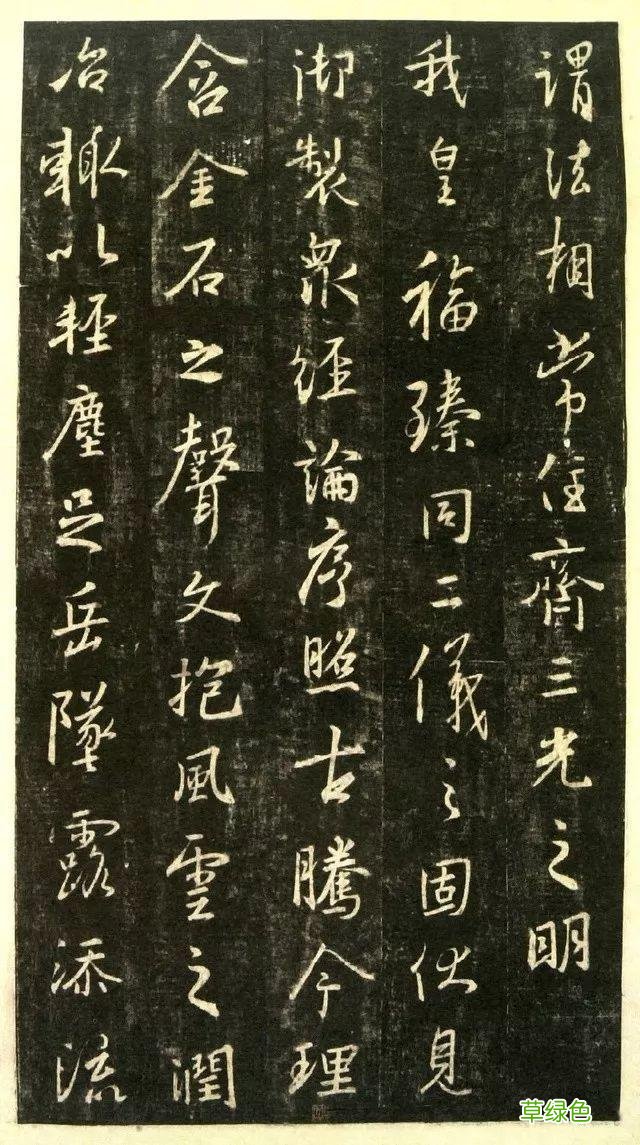 謂法相常住齊三光之明
我皇福臻同二儀之固伏見
御製眾經論序照古騰今理
含金石之聲文抱風雲之潤
治輒以輕塵足岳墜露添流
草绿色